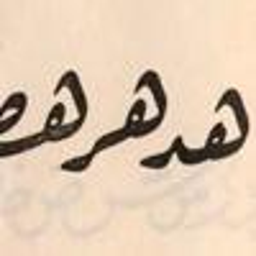 هد هر هص